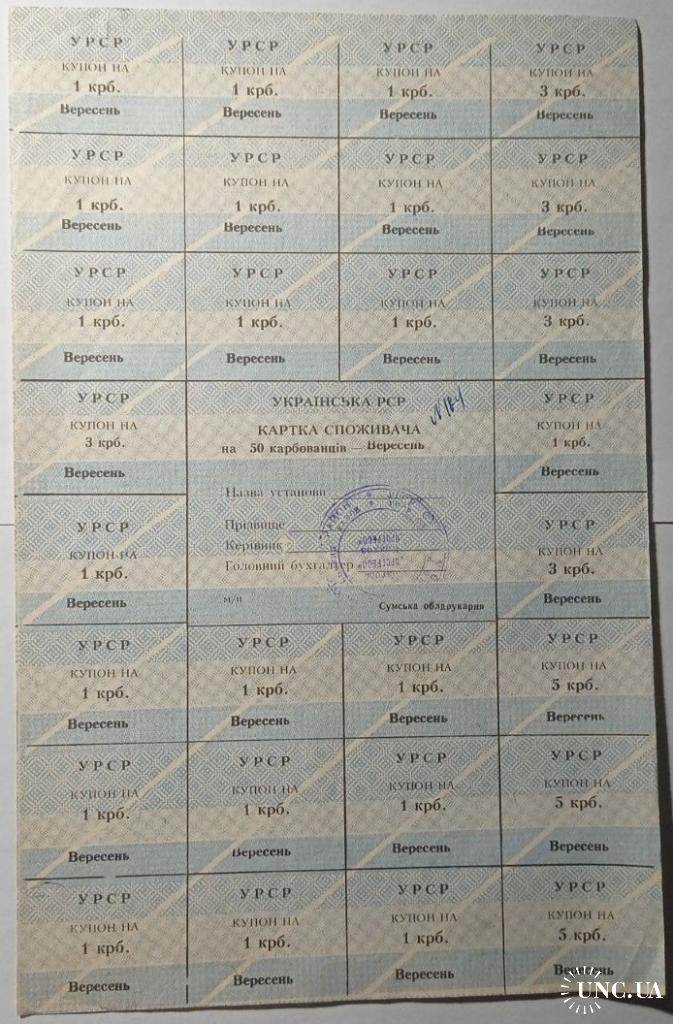 УРСР УРСР УРСР УРСР
КУПОН НА КУПОН НА КУПОН НА КУПОН НА
1 крб. 1 крб. 1 крб. 3 крб.
Вересень Вересень Вересень Вересень
УРСР УРСР УРСР УРСР
КУПОН НА КУПОН НА КУПОН НА КУПОН НА
1 крб. 1 крб. 1 крб. 3 крб.
Вересень Вересень Вересень Вересень
УРСР УРСР УРСР УРСР
КУПОН НА КУПОН НА КУПОН НА КУПОН НА
1 крб. 1 крб. 1 крб. 3 крб.
Вересень Вересень Вересень Вересень
УРСР
КУПОН НА
3 крб.
Вересень
УКРАЇНСЬКА РСР
КАРТКА СПОЖИВАЧА
на 50 карбованців — Вересень
Назва установи
Прізвище
Керівник
Головний бухгалтер
м/п
Сумська облдрукарня
УРСР
КУПОН НА
1 крб.
Вересень
УРСР
КУПОН НА
1 крб.
Вересень
УРСР
КУПОН НА
3 крб.
Вересень
УРСР УРСР УРСР УРСР
КУПОН НА КУПОН НА КУПОН НА КУПОН НА
1 крб. 1 крб. 1 крб. 5 крб.
Вересень Вересень Вересень Вересень
УРСР УРСР УРСР УРСР
КУПОН НА КУПОН НА КУПОН НА КУПОН НА
1 крб. 1 крб. 1 крб. 5 крб.
Вересень Вересень Вересень Вересень
УРСР УРСР УРСР УРСР
КУПОН НА КУПОН НА КУПОН НА КУПОН НА
1 крб. 1 крб. 1 крб. 5 крб.
Вересень Вересень Вересень Вересень
UNC.UA